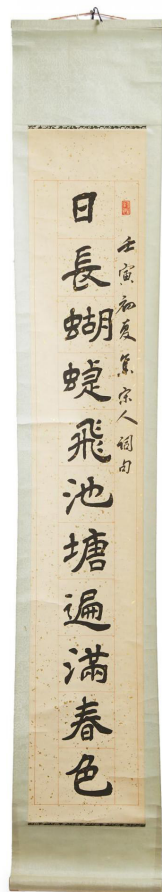 壬寅初夏集宋人詞句
日長蝴蜨飛池塘遍滿春色